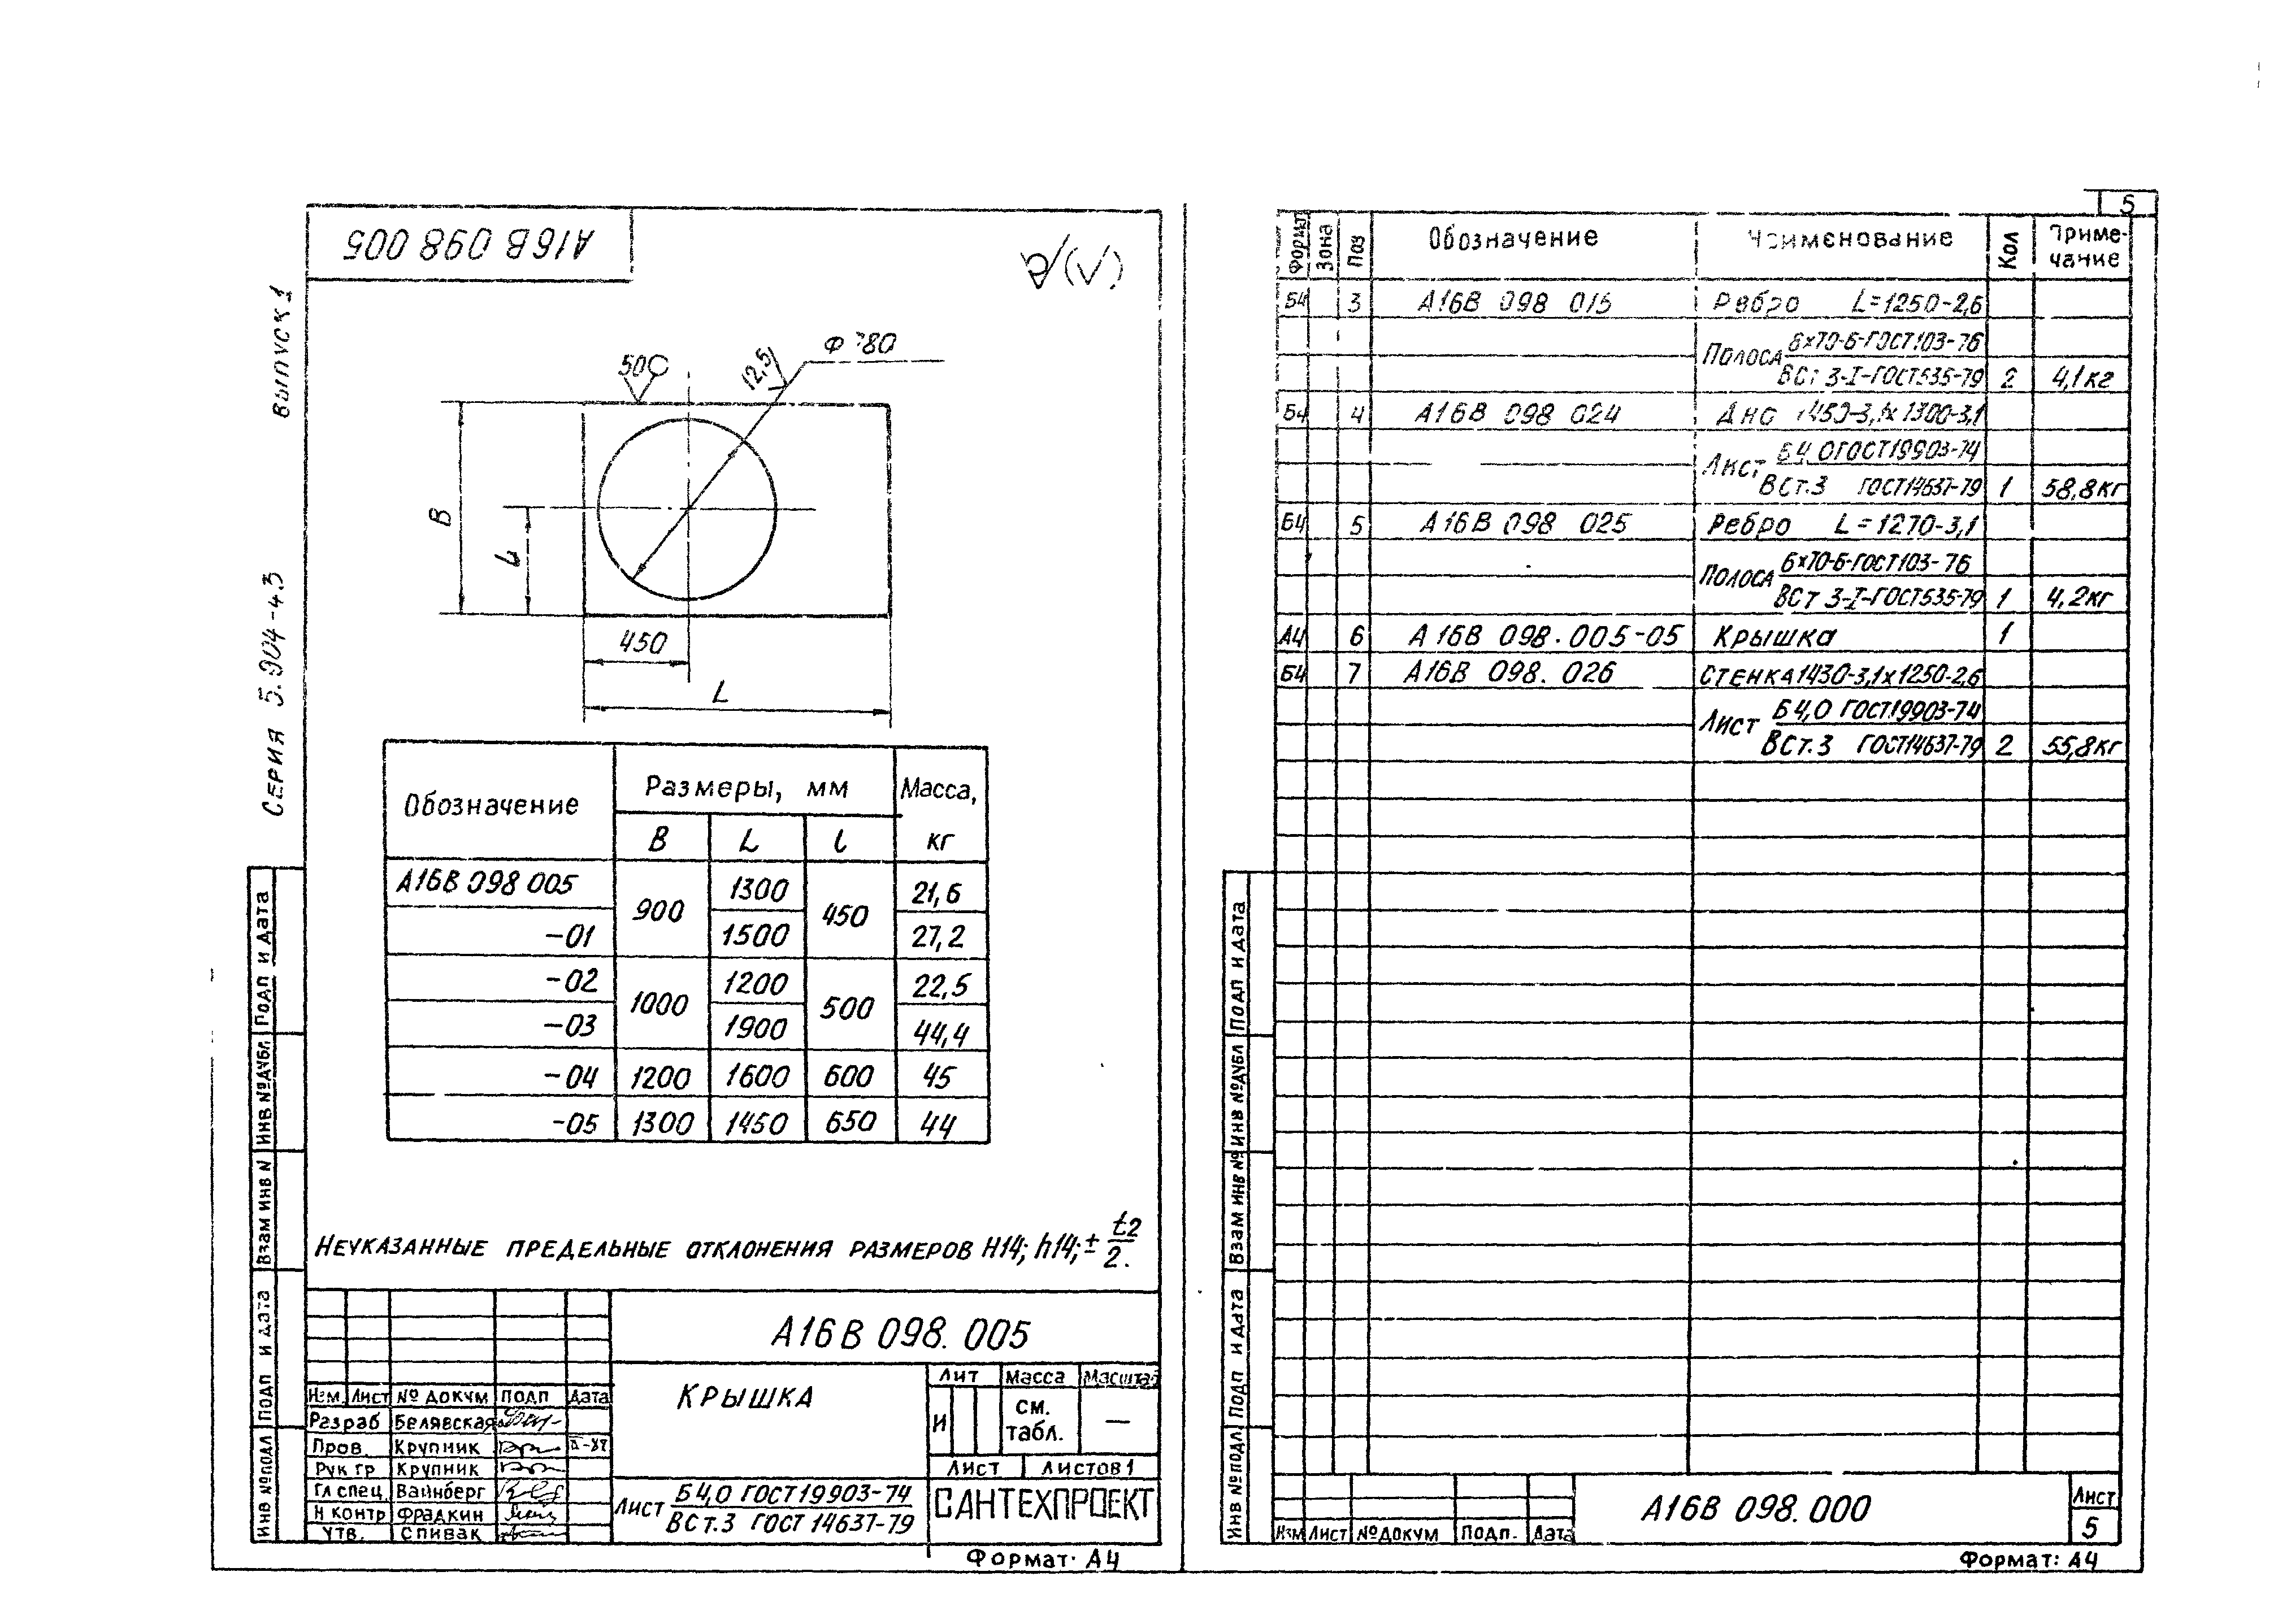 А16В 098 005
Серия 5.904-43
выпуск 1
50
12,5
80
В
L
450
L
Обозначение
Размеры, мм
Масса, кг
В
L
l
А16В 098 005
900
1300
450
21,6
-01
1500
27,2
-02
1000
1200
500
22,5
-03
1900
44,4
-04
1200
1600
600
45
-05
1300
1450
650
44
Неуказанные предельные отклонения размеров H14; h14; ± t2/2.
А16В 098. 005
Крышка
Лит
Масса
Масштаб
И
см. табл.
—
Лист
Листов 1
Лист Б 4,0 ГОСТ 19903-74
ВСт.3 ГОСТ 14637-79
САНТЕХПРОЕКТ
Изм
Лист
№ докум
Подп
Дата
Разраб Белявская
Пров. Крупник
Рук гр Крупник
Гл спец. Вайнберг
Н контр Фрадкин
Утв. Спивак
Формат· А4
Подп и дата
Инв № дубл
Взам инв N
Подп и дата
Инв № подл
5
Формат
Зона
Поз
Обозначение
Наименование
Кол
Приме-
чание
Б4 3 А16В 098 015 Ребро L=1250-2,6
Полоса 6×70-Б-ГОСТ103-76
ВСт 3-I-ГОСТ535-79 2 4,1кг
Б4 4 А16В 098 024 Дно 1450-3,1х1300-3,1
Лист Б4,0ГОСТ19903-74
ВСт.3 ГОСТ14637-79 1 58,8кг
Б4 5 А16В 098 025 Ребро L=1270-3,1
Полоса 6×70-Б-ГОСТ103-76
ВСт 3-I-ГОСТ535-79 1 4,2кг
А4 6 А16В 098.005-05 Крышка 1
Б4 7 А16В 098. 026 Стенка 1430-3,1х1250-2,6
Лист Б4,0 ГОСТ19903-74
ВСт.3 ГОСТ14637-79 2 55,8кг
Подп и дата
Инв № дубл
Взам инв №
Подп и дата
Инв № подл
Изм
Лист
№ докум
Подп.
Дата
А16В 098. 000
Лист
5
Формат: А4